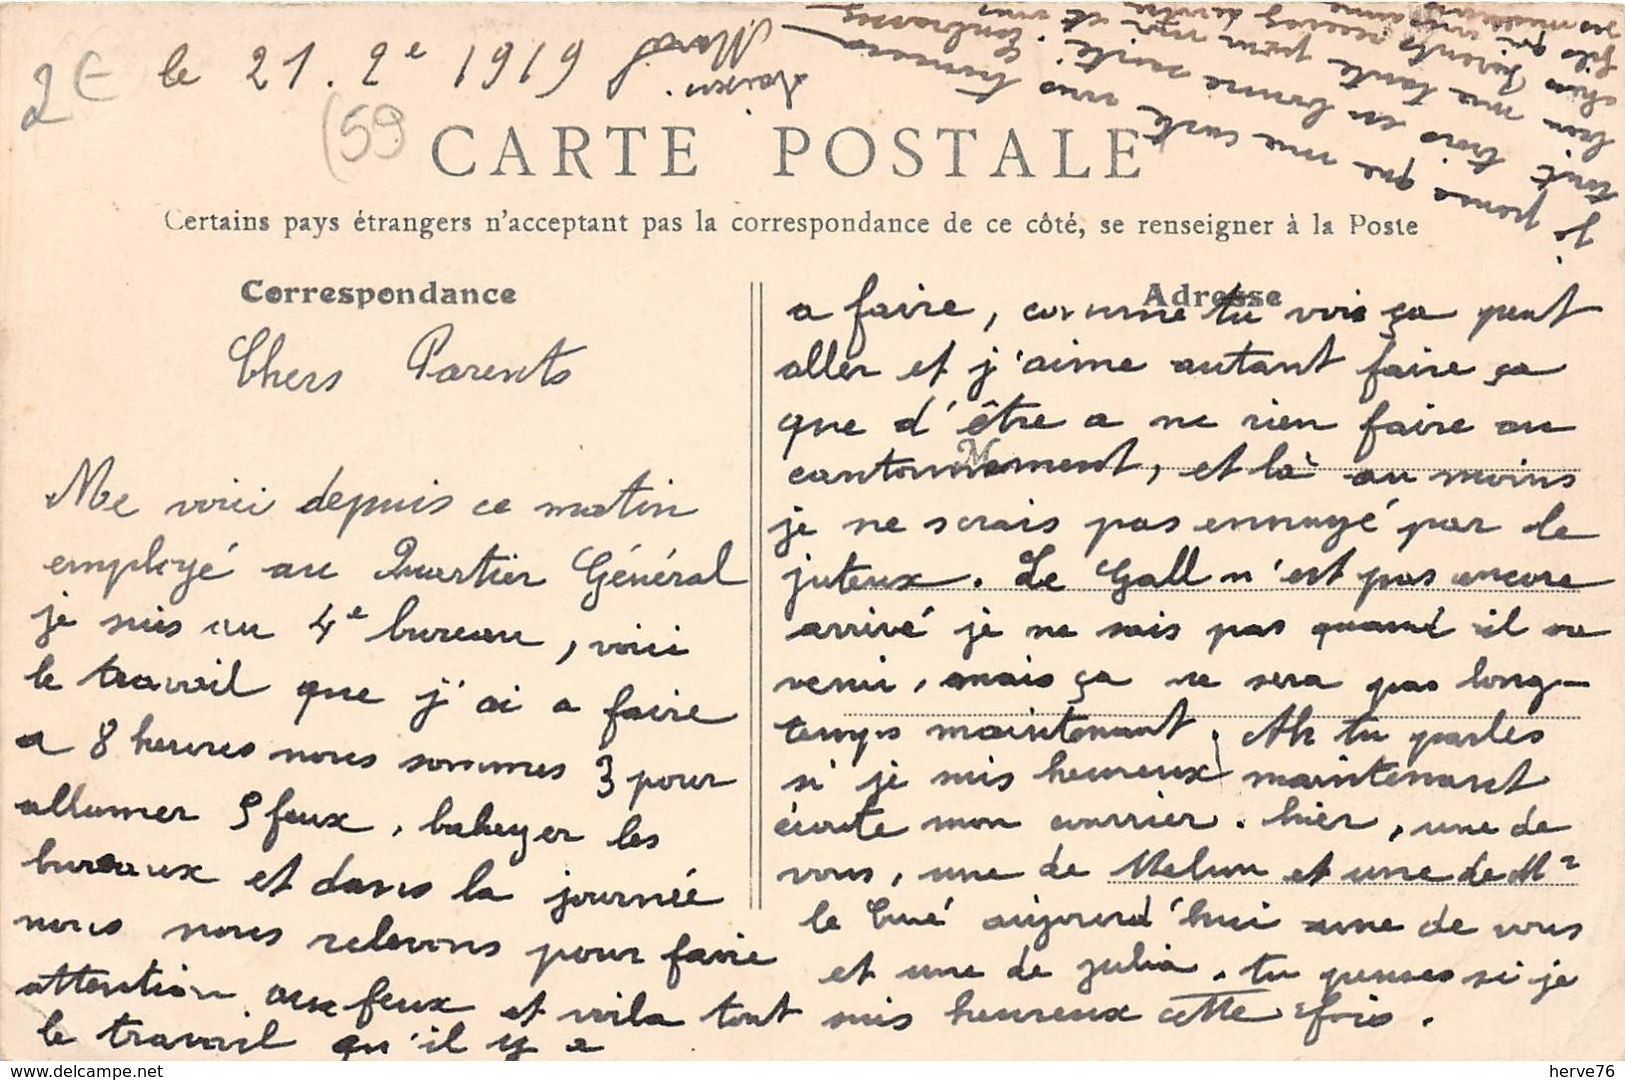 2€ le 21. 2e 1919
(59)
CARTE POSTALE
Certains pays étrangers n'acceptant pas la correspondance de ce côté, se renseigner à la Poste
Correspondance
Chers Parents
Me voici depuis ce matin
employé au Quartier Général
je suis au 4e bureau, voici
le travail que j'ai a faire
a 8 heures nous sommes 3 pour
allumer 9 feux, balayer les
bureaux et dans la journée
nous nous relevons pour faire
attention aux feux et voila tout
le travail qu'il y a
Adresse
a faire, comme tu vois ça peut
aller et j'aime autant faire ça
que d'être a ne rien faire au
cantonnement, et là au moins
je ne serais pas ennuyé par le
juteux. Le Gall n'est pas encore
arrivé je ne sais pas quand il va
venir, mais ça ne sera pas long-
temps maintenant. Ah tu parles
si je suis heureux maintenant
écoute mon courrier. hier, une de
vous, une de Melun et une de Mr
le Curé aujourd'hui une de vous
et une de Julia. tu penses si je
suis heureux cette fois.
Je pense que ma carte vous trouvera
tout trois en bonne santé.
bien ma tante pour moi et vous
chers Parents recevez de votre
fils qui vous aime
Marcel
hervé76